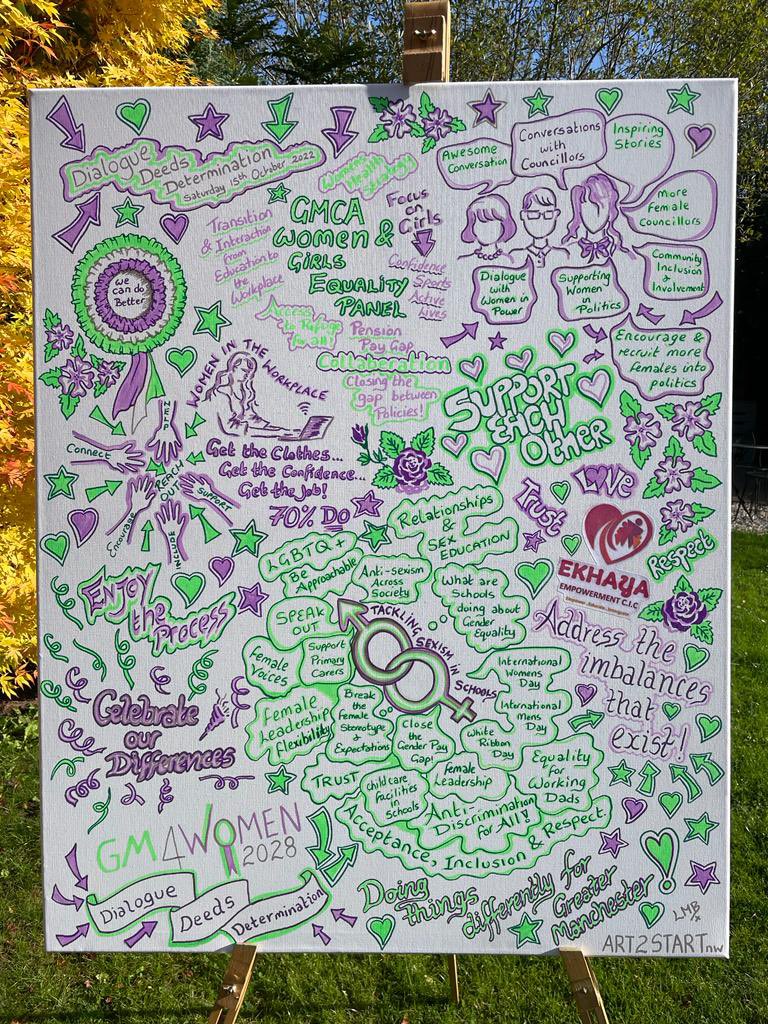 Dialogue
Deeds
Determination
Saturday 15th October 2022
Womens Health
Strategy
Awesome
Conversation
Conversations
with
Councillors
Inspiring
Stories
more
Female
Councillors
Community
Inclusion &
Involvement
Dialogue
with
Women in
Power
Supporting
Women
in
Politics
Encourage &
recruit more
females into
politics
we
can do
Better
Transition
& Interaction
from
Education to
the
Workplace
GMCA
Women &
GIRLS
EQUALITY
PANEL
Focus
on
Girls
Confidence
Sports
Active
Lives
Access
to Refuge
for all!
Pension
Pay Gap
Collaberation
Closing the
gap between
Policies!
WOMEN IN THE WORKPLACE
Get the Clothes...
Get the Confidence...
Get the Job!
70% Do
SUPPORT
EACH
Other
Connect
HELP
REACH
OUT
SUPPORT
Encourage
INCLUDE
Trust
LOVE
Respect
EKHAYA
EMPOWERMENT C.I.C
ENJOY
the
Process
Relationships
&
SEX
EDUCATION
LGBTQ+
Be
Approachable
Anti-sexism
Across
Society
What are
Schools
doing about
Gender
Equality
SPEAK
OUT
TACKLING SEXISM IN SCHOOLS
Female
Voices
Support
Primary
Carers
International
Womens
Day
International
Mens
Day
Female
Leadership
Flexibility
Break
the
Female
Stereotype
+
Expectations
Close
the
Gender Pay
Gap!
White
Ribbon
Day
Equality
for
Working
Dads
TRUST
Childcare
Facilities
in
Schools
Female
Leadership
Anti-
Discrimination
for All!
Acceptance, Inclusion & Respect
Address the
imbalances
that
exist!
Celebrate
our
Differences
GM4WOMEN
2028
Dialogue
Deeds
Determination
Doing
things
differently for
Greater
Manchester
LMB
ART2STARTNW